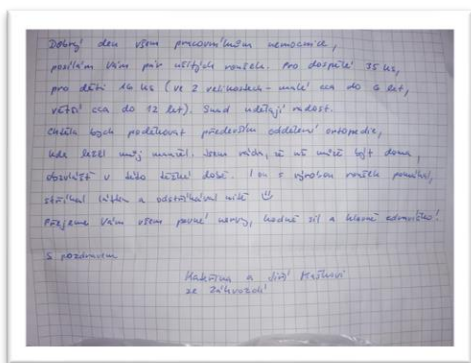 Dobrý den všem pracovníkům nemocnice,
posílám Vám pár ušitých roušek. Pro dospělé 35 ks,
pro děti 16 ks (ve 2 velikostech - malé cca do 6 let,
větší cca do 12 let). Snad udělají radost.
Chtěla bych poděkovat především oddělení ortopedie,
kde ležel můj manžel. Jsem ráda, že už může být doma,
obzvlášť v této těžké době. I on s výrobou roušek pomáhal,
stříhal látku a odstřihával nitě ☺
Přejeme Vám všem pevné nervy, hodně sil a hlavně zdravíčko!
S pozdravem
Kateřina a Jiří
ze Záhvozdí